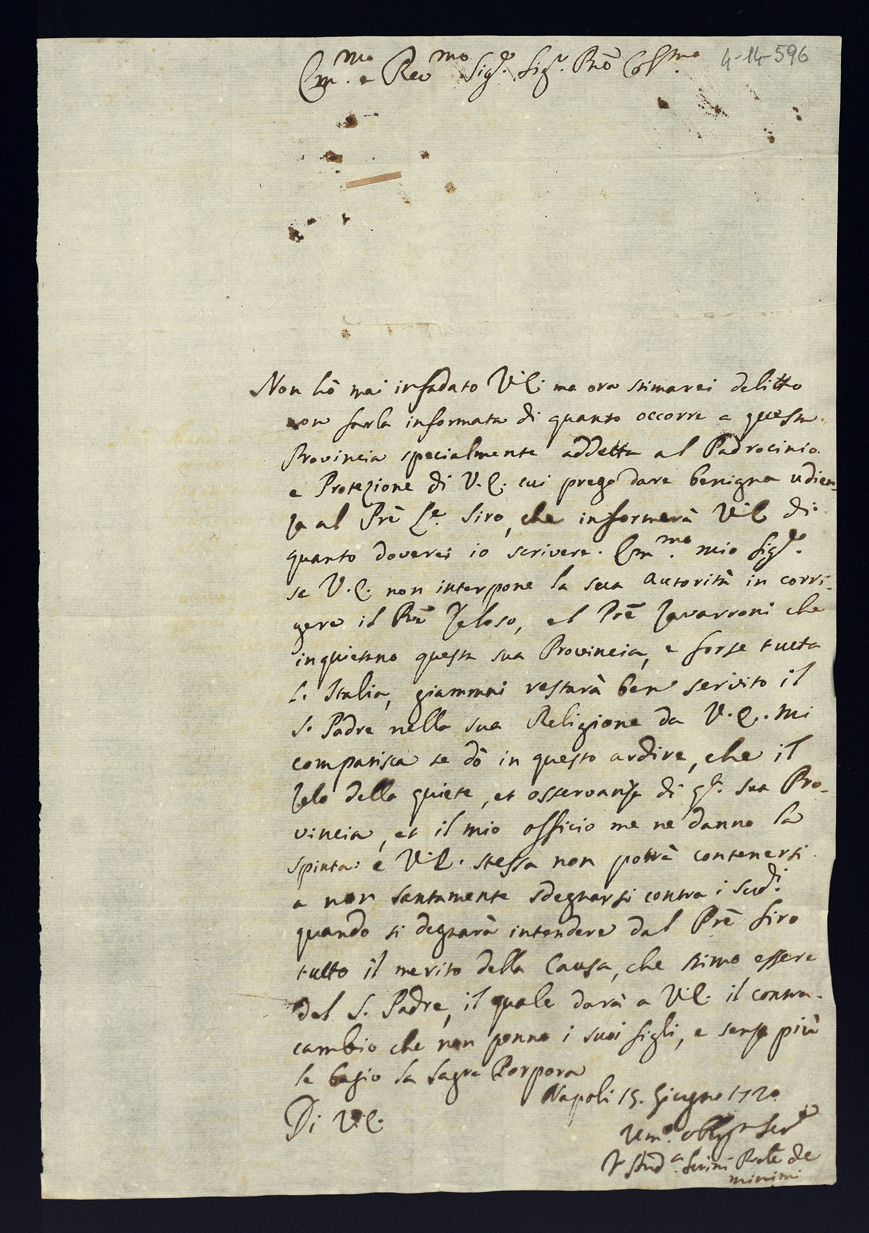 Em.mo e Rev.mo Sig.re Sig.r Pr̃one Col.mo
4-14-596
Non hò mai infadato V.E. ma ora stimarei delitto
non farla informata di quanto occorre a questa
Provincia specialmente addetta al Padrocinio
e Protezione di V.E. cui prego dare benigna udien-
za al Prẽ Siro, che informerà V.E. di
quanto doverei io scrivere. Em.mo mio Sig.re
se V.E. non interpone la sua autorità in corri-
gere il Prẽ Zeloso, el Prẽ Zavarroni che
inquietano questa sua Provincia, e forse tutta
l'Italia, giammai restarà ben servito il
S. Padre nella sua Religione da V.E. Mi
compatisca se dò in questo ardire, che il
zelo della quiete, et osservanza di q.ta sua Pro-
vincia, et il mio officio me ne danno la
spinta: e V.E. stessa non potrà contenersi
a non santamente sdegnarsi contra i sud.i
quando si degnarà intendere dal Prẽ Siro
tutto il merito della Causa, che stimo essere
del S. Padre, il quale darà a V.E. il contra-
cambio che non ponno i suoi figli, e senza più
le bagio la Sagra Porpora
Napoli 15. Giugno 1720
Di V.E.
Um.o obblig.mo Ser.re
Serini de
minimi